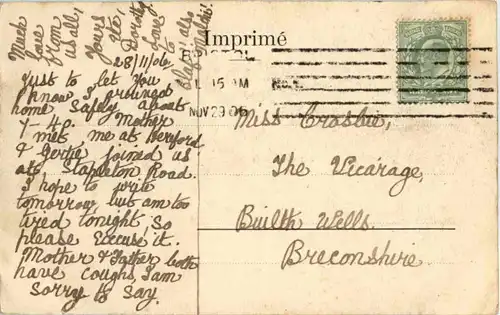 Much
love
from
us all,
Yours
etc;
Dorothy.
Love
to
also
Imprimé
28/11/06.
BRISTOL
15 AM
NOV 29 06
Just to let You
know I arrived
home safely about
7-40. Mother
met me at Hereford
& Gertie joined us
at, Stapleton Road.
I hope to write
tomorrow but am too
tired tonight, so
please excuse, it.
Mother & Father both
have coughs, I am
sorry to say.
Miss Crosbie,
The Vicarage,
Builth Wells,
Breconshire.